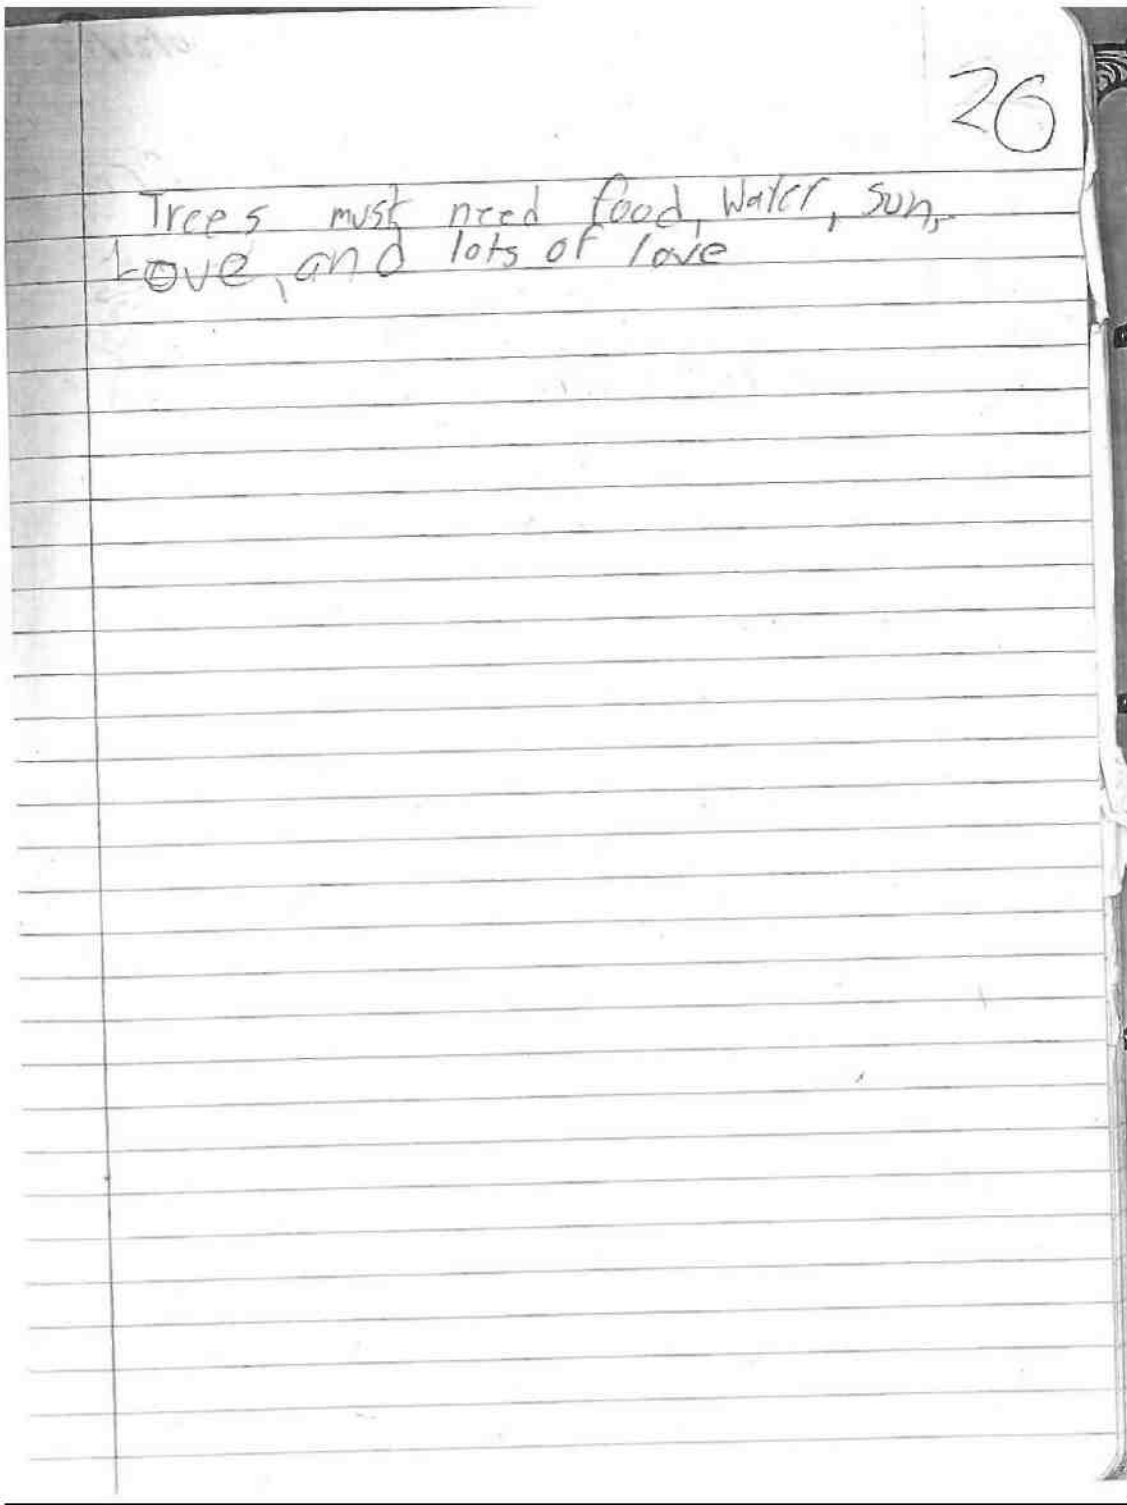 26
Trees must need food, Water, Sun,
Love, and lots of love